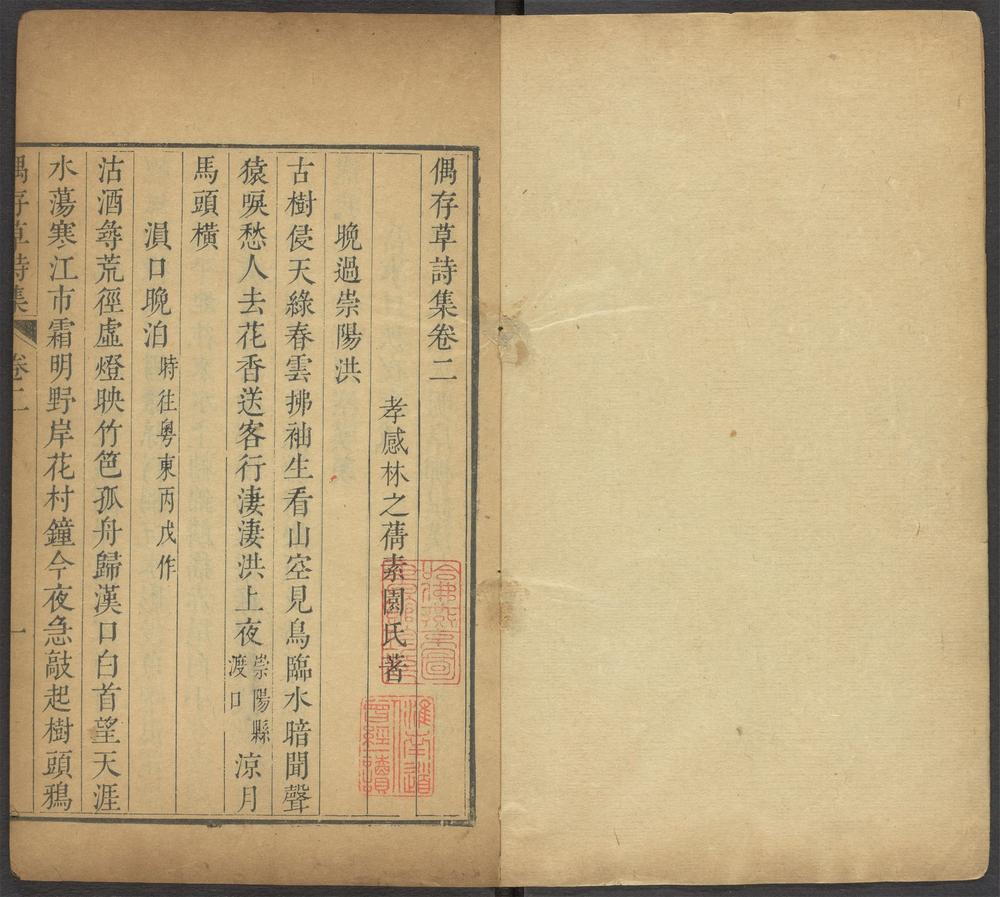 偶存草詩集卷二
孝感林之蒨素園氏著
晚過崇陽洪
古樹侵天綠春雲拂袖生看山空見鳥臨水暗聞聲
猿唳愁人去花香送客行淒淒洪上夜崇陽縣渡口涼月
馬頭橫
溳口晚泊時往粵東丙戊作
沽酒尋荒徑虛燈映竹笆孤舟歸漢口白首望天涯
水蕩寒江市霜明野岸花村鐘今夜急敲起樹頭鴉
偶存草詩集 卷二 一